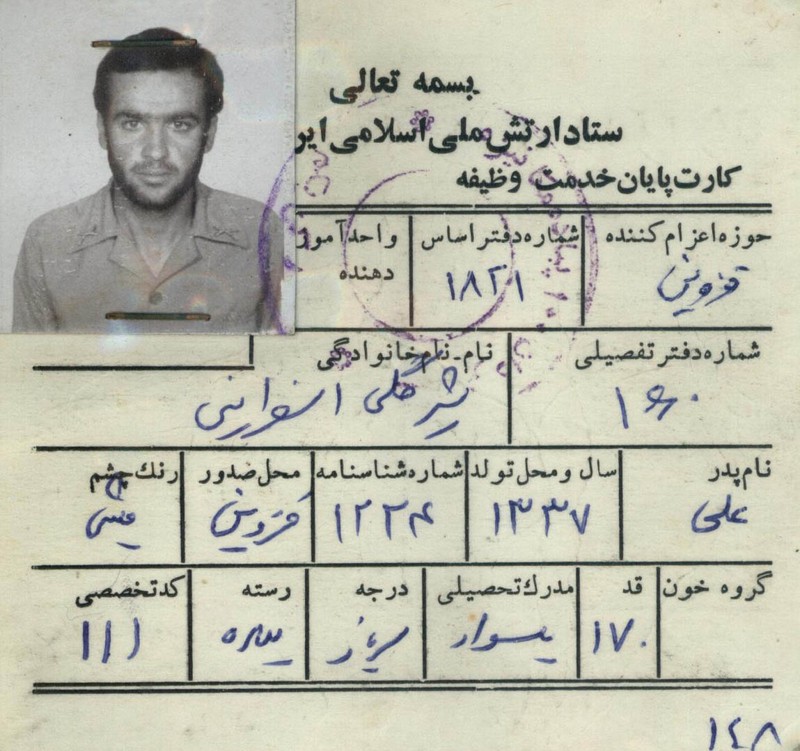 بسمه تعالی
ستاد ارتش ملی اسلامی ایر
کارت پایان خدمت وظیفه
حوزه اعزام کننده شماره دفتر اساس واحد آموز
دهنده
قزوین ۱۸۲۱
شماره دفتر تفصیلی نام-نام خانوادگی
شیرعلی
نام پدر سال و محل تولد شماره شناسنامه محل صدور رنك چشم
علی ۱۳۳۷ ۱۲۲۴ قزوین میشی
گروه خون قد مدرك تحصیلی درجه رسته کد تخصصی
۱۷۰ بیسواد سرباز پیاده ۱۱۱
۱۴۸